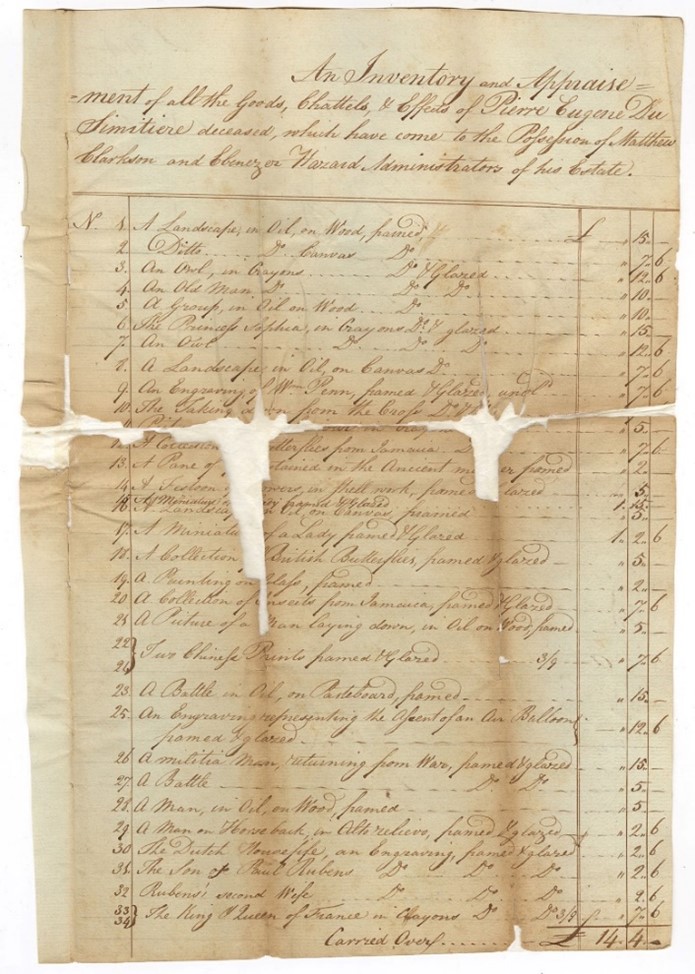 An Inventory and Appraise=
=ment of all the Goods, Chattels, & Effects of Pierre Eugene Du
Simitiere deceased, which have come to the Possession of Matthew
Clarkson and Ebenezer Hazard Administrators of his Estate.
N. 1. A Landscape, in Oil, on Wood, framed, £ " 15. -
2. Ditto Do. Canvas Do. " 7. 6
3. An Owl, in Crayons Do. & Glazed " 12. 6
4. An Old Man Do. Do. Do. " 10. -
5. A Group, in Oil on Wood Do. " 10. -
6. The Princess Sophia, in Crayons Do. & glazed " 15. -
7. An Owl Do. Do. D " 12. 6
8. A Landscape in Oil, on Canvas Do " 7. 6
9. An Engraving of Wm. Penn, framed & Glazed, " 7. 6
10. The Taking down from the Cross Do.
5. -
12. A Collection Butterflies from Jamaica " 7. 6
13. A Pane of stained in the Ancient framed " 2. -
14. A Festoon in Shell work, framed glazed " 5. -
15. A Miniature framed & Glazed 1. 15. -
16. A Landscape Oil, on Canvas, framed " 5. -
17. A Miniature of a Lady framed & Glazed 1. 2. 6
18. A Collection British Butterflies, framed & glazed " 5. -
19. A Painting on Glass, framed " 2. -
20. A Collection of Insects from Jamaica, framed & Glazed " 7. 6
21. A Picture of a Man laying down, in Oil on Wood, framed " 5. -
22
24 } Two Chinese Prints framed & Glazed 3/9 " 7. 6
23. A Battle in Oil, on Pasteboard, framed " 15. -
25. An Engraving representing the Ascent of an Air Balloon
framed & glazed } " 12. 6
26. A militia Man, returning from War, framed & glazed " 15. -
27. A Battle Do. Do. " 5. -
28. A Man, in Oil, on Wood, framed " 5
29. A Man on Horseback, in Alto relievo, framed & glazed " 2. 6
30. The Dutch Housewife, an Engraving, framed & glazed " 2. 6
31. The Son of Paul Rubens Do. Do. Do. " 2. 6
32. Rubens' second Wife Do. Do. Do. " 2. 6
33
34 } The King & Queen of France in Crayons Do. Do. 3/9 " 7. 6
Carried Over £ 14. 4. -